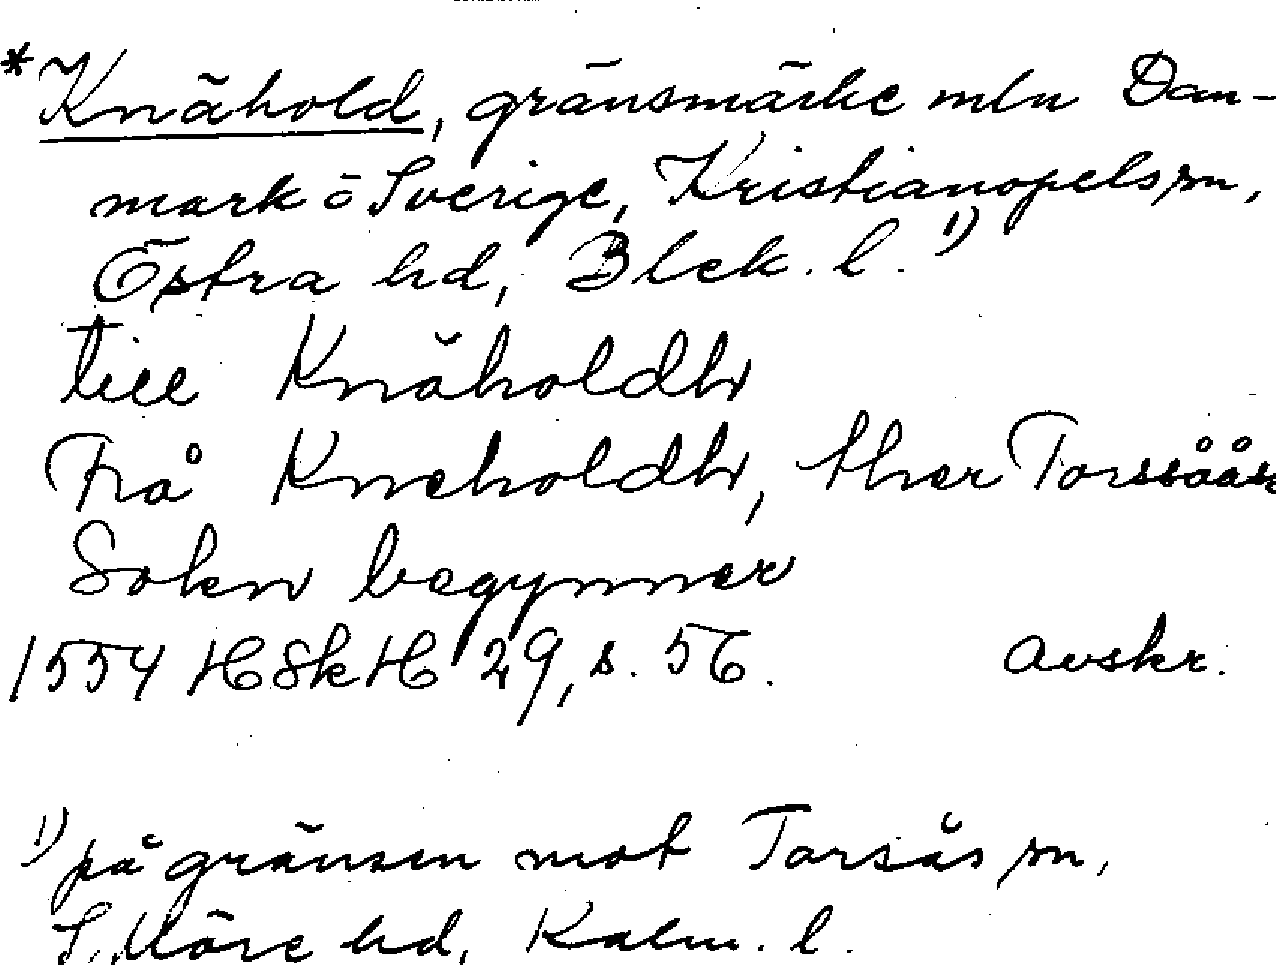 *Knähold, gränsmärke mln Dan-
mark o Sverige, Kristianopels sn,
Östra hd, Blek. l. 1)
till Knäholdh
Frå Kneholdh, ther Torssåås
Sokn begynner
1554 HSkH 29, s. 56. avskr.
1) på gränsen mot Torsås sn,
S. Möre hd, Kalm. l.